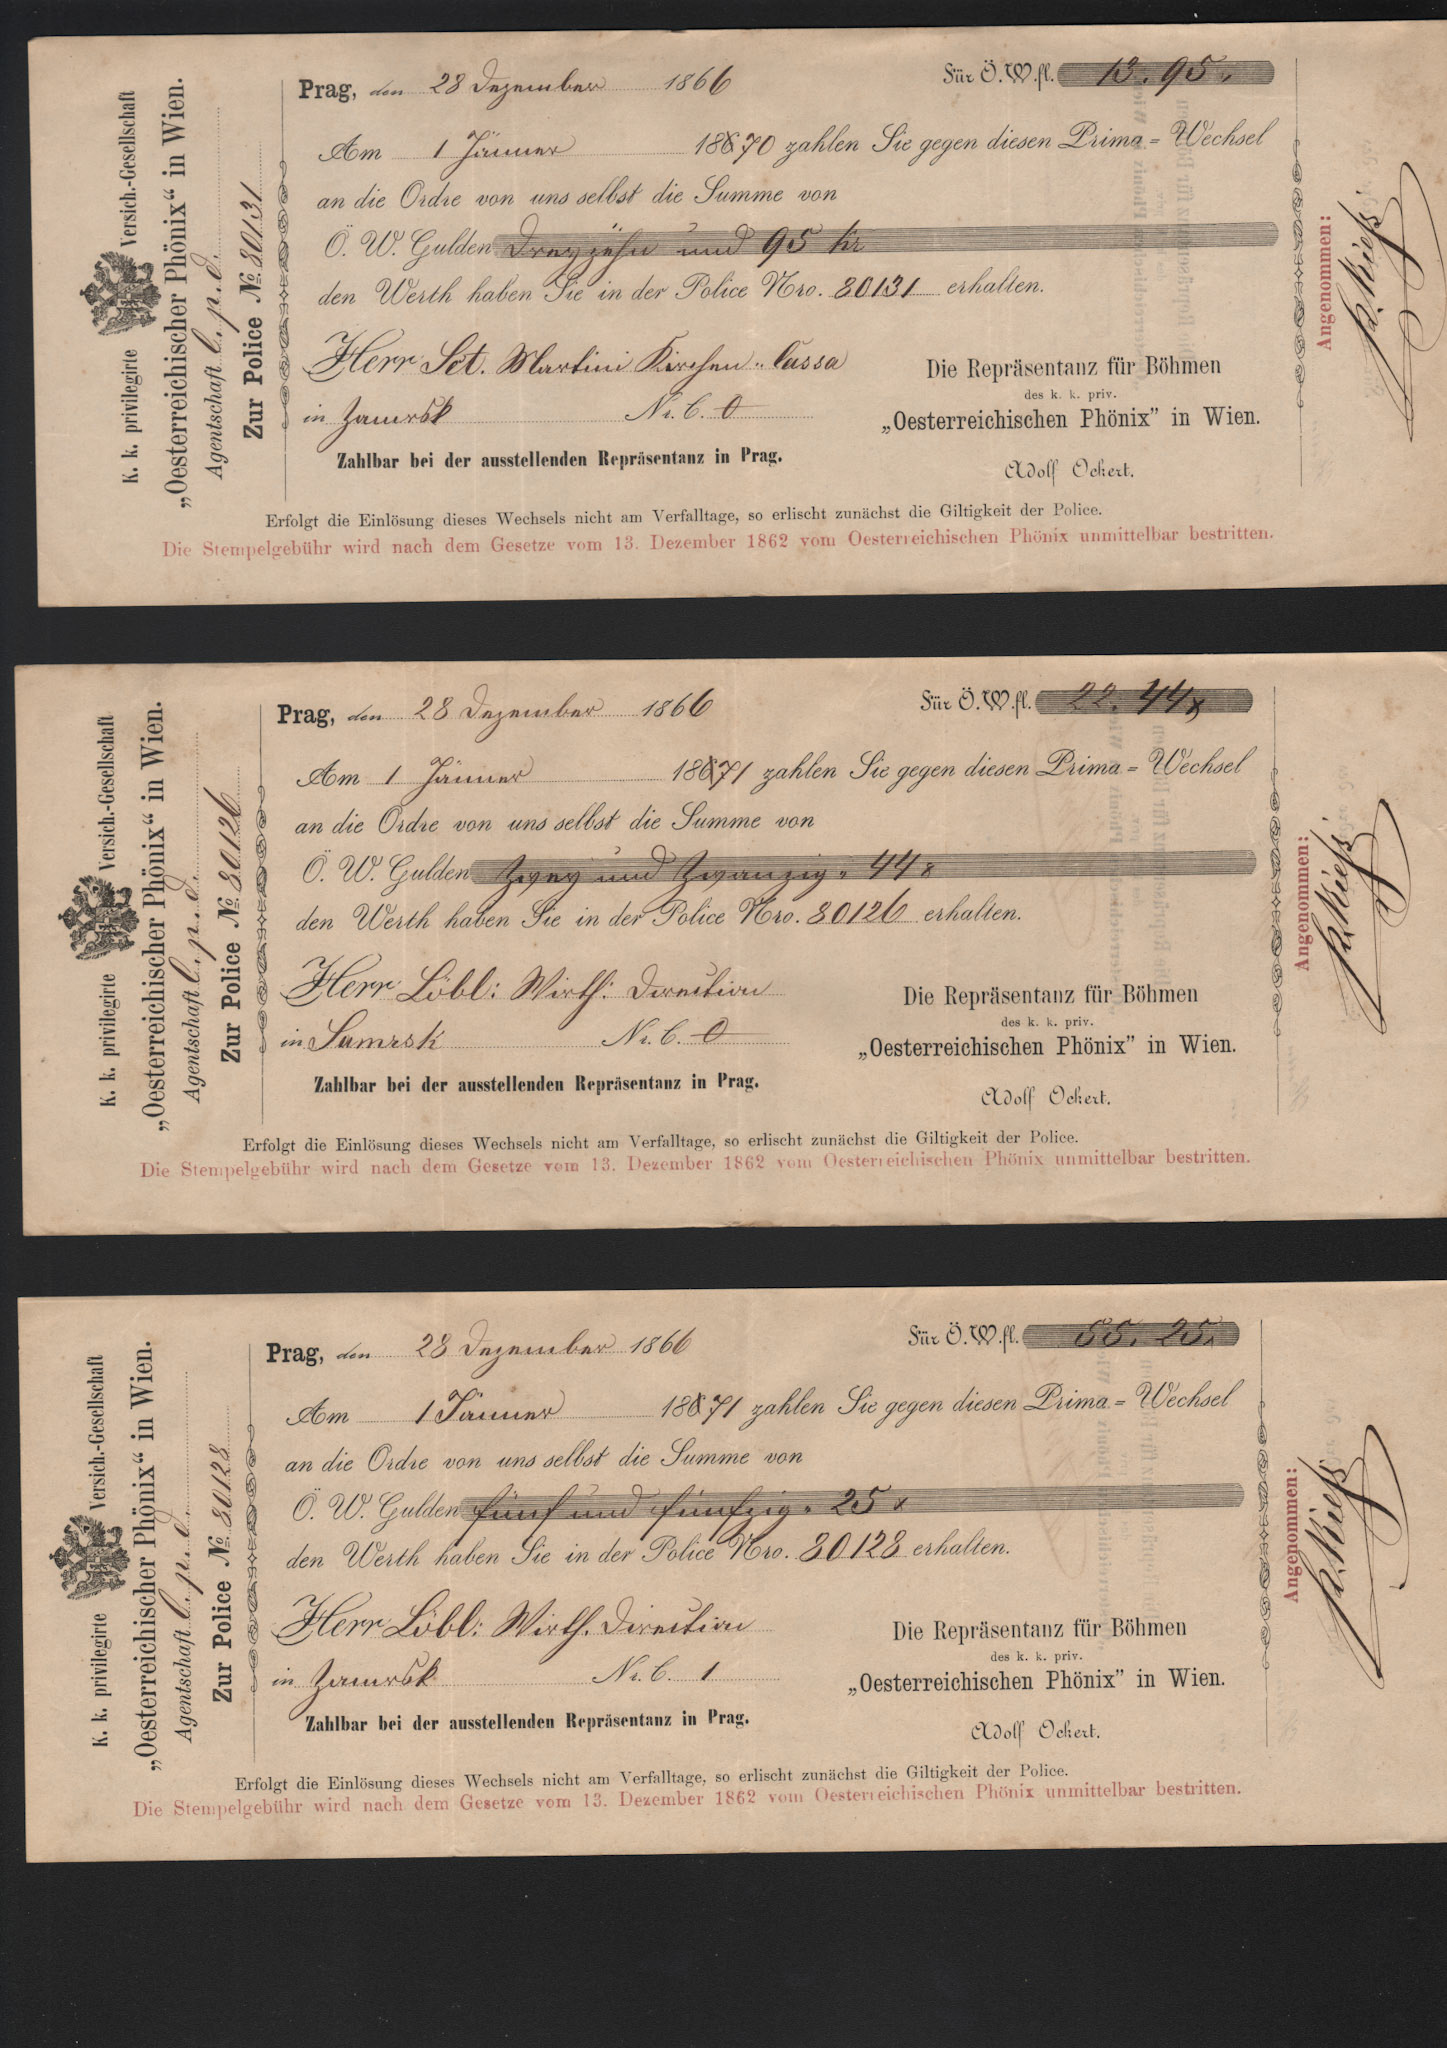 K. k. privilegirte Versich.-Gesellschaft
„Oesterreichischer Phönix“ in Wien.
Agentschaft l. p. d.
Zur Police No. 80131
Prag, den 28 Dezember 1866
Für Ö. W. fl. 13. 95.
Am 1 Jänner 18670 zahlen Sie gegen diesen Prima = Wechsel
an die Ordre von uns selbst die Summe von
Ö. W. Gulden Dreyzehn und 95 kr
den Werth haben Sie in der Police Nro. 80131 erhalten.
Herr Sct. Martini Kirchen-Cassa
in Zamrsk Nr. C. 0
Zahlbar bei der ausstellenden Repräsentanz in Prag.
Die Repräsentanz für Böhmen
des k. k. priv.
„Oesterreichischen Phönix” in Wien.
Adolf Ockert.
Erfolgt die Einlösung dieses Wechsels nicht am Verfalltage, so erlischt zunächst die Giltigkeit der Police.
Die Stempelgebühr wird nach dem Gesetze vom 13. Dezember 1862 vom Oesterreichischen Phönix unmittelbar bestritten.
Angenommen:
K. k. privilegirte Versich.-Gesellschaft
„Oesterreichischer Phönix“ in Wien.
Agentschaft l. p. d.
Zur Police No. 80126
Prag, den 28 Dezember 1866
Für Ö. W. fl. 22. 44 x
Am 1 Jänner 18671 zahlen Sie gegen diesen Prima = Wechsel
an die Ordre von uns selbst die Summe von
Ö. W. Gulden Zwey und Zwanzig. 44 x
den Werth haben Sie in der Police Nro. 80126 erhalten.
Herr Löbl: Wirth: Direction
in Samrsk Nr. C. 0
Zahlbar bei der ausstellenden Repräsentanz in Prag.
Die Repräsentanz für Böhmen
des k. k. priv.
„Oesterreichischen Phönix” in Wien.
Adolf Ockert.
Erfolgt die Einlösung dieses Wechsels nicht am Verfalltage, so erlischt zunächst die Giltigkeit der Police.
Die Stempelgebühr wird nach dem Gesetze vom 13. Dezember 1862 vom Oesterreichischen Phönix unmittelbar bestritten.
Angenommen:
K. k. privilegirte Versich.-Gesellschaft
„Oesterreichischer Phönix“ in Wien.
Agentschaft l. p. d.
Zur Police No. 80128
Prag, den 28 Dezember 1866
Für Ö. W. fl. 55. 25.
Am 1 Jänner 18671 zahlen Sie gegen diesen Prima = Wechsel
an die Ordre von uns selbst die Summe von
Ö. W. Gulden fünf und fünfzig. 25 x
den Werth haben Sie in der Police Nro. 80128 erhalten.
Herr Löbl: Wirth. Direction
in Zamrsk Nr. C. 1
Zahlbar bei der ausstellenden Repräsentanz in Prag.
Die Repräsentanz für Böhmen
des k. k. priv.
„Oesterreichischen Phönix” in Wien.
Adolf Ockert.
Erfolgt die Einlösung dieses Wechsels nicht am Verfalltage, so erlischt zunächst die Giltigkeit der Police.
Die Stempelgebühr wird nach dem Gesetze vom 13. Dezember 1862 vom Oesterreichischen Phönix unmittelbar bestritten.
Angenommen: